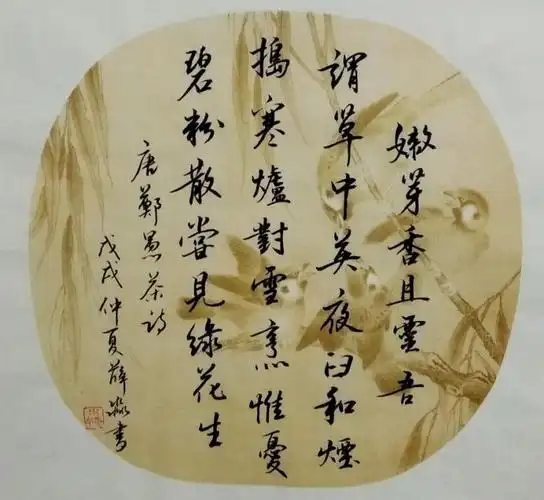 嫩芽香且靈吾
謂草中英夜臼和煙
搗寒爐對雪烹惟憂
碧粉散嘗見綠花生
唐鄭愚茶詩
戊戌仲夏薛淼書